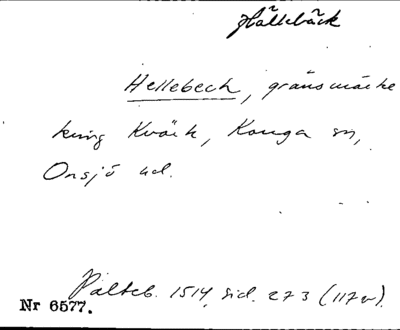 Hällebäck
Hellebech, gränsmärke
kring Kvärk, Konga sn,
Onsjö hd.
Pålteb. 1514, sid. 273 (117v).
Nr 6577.